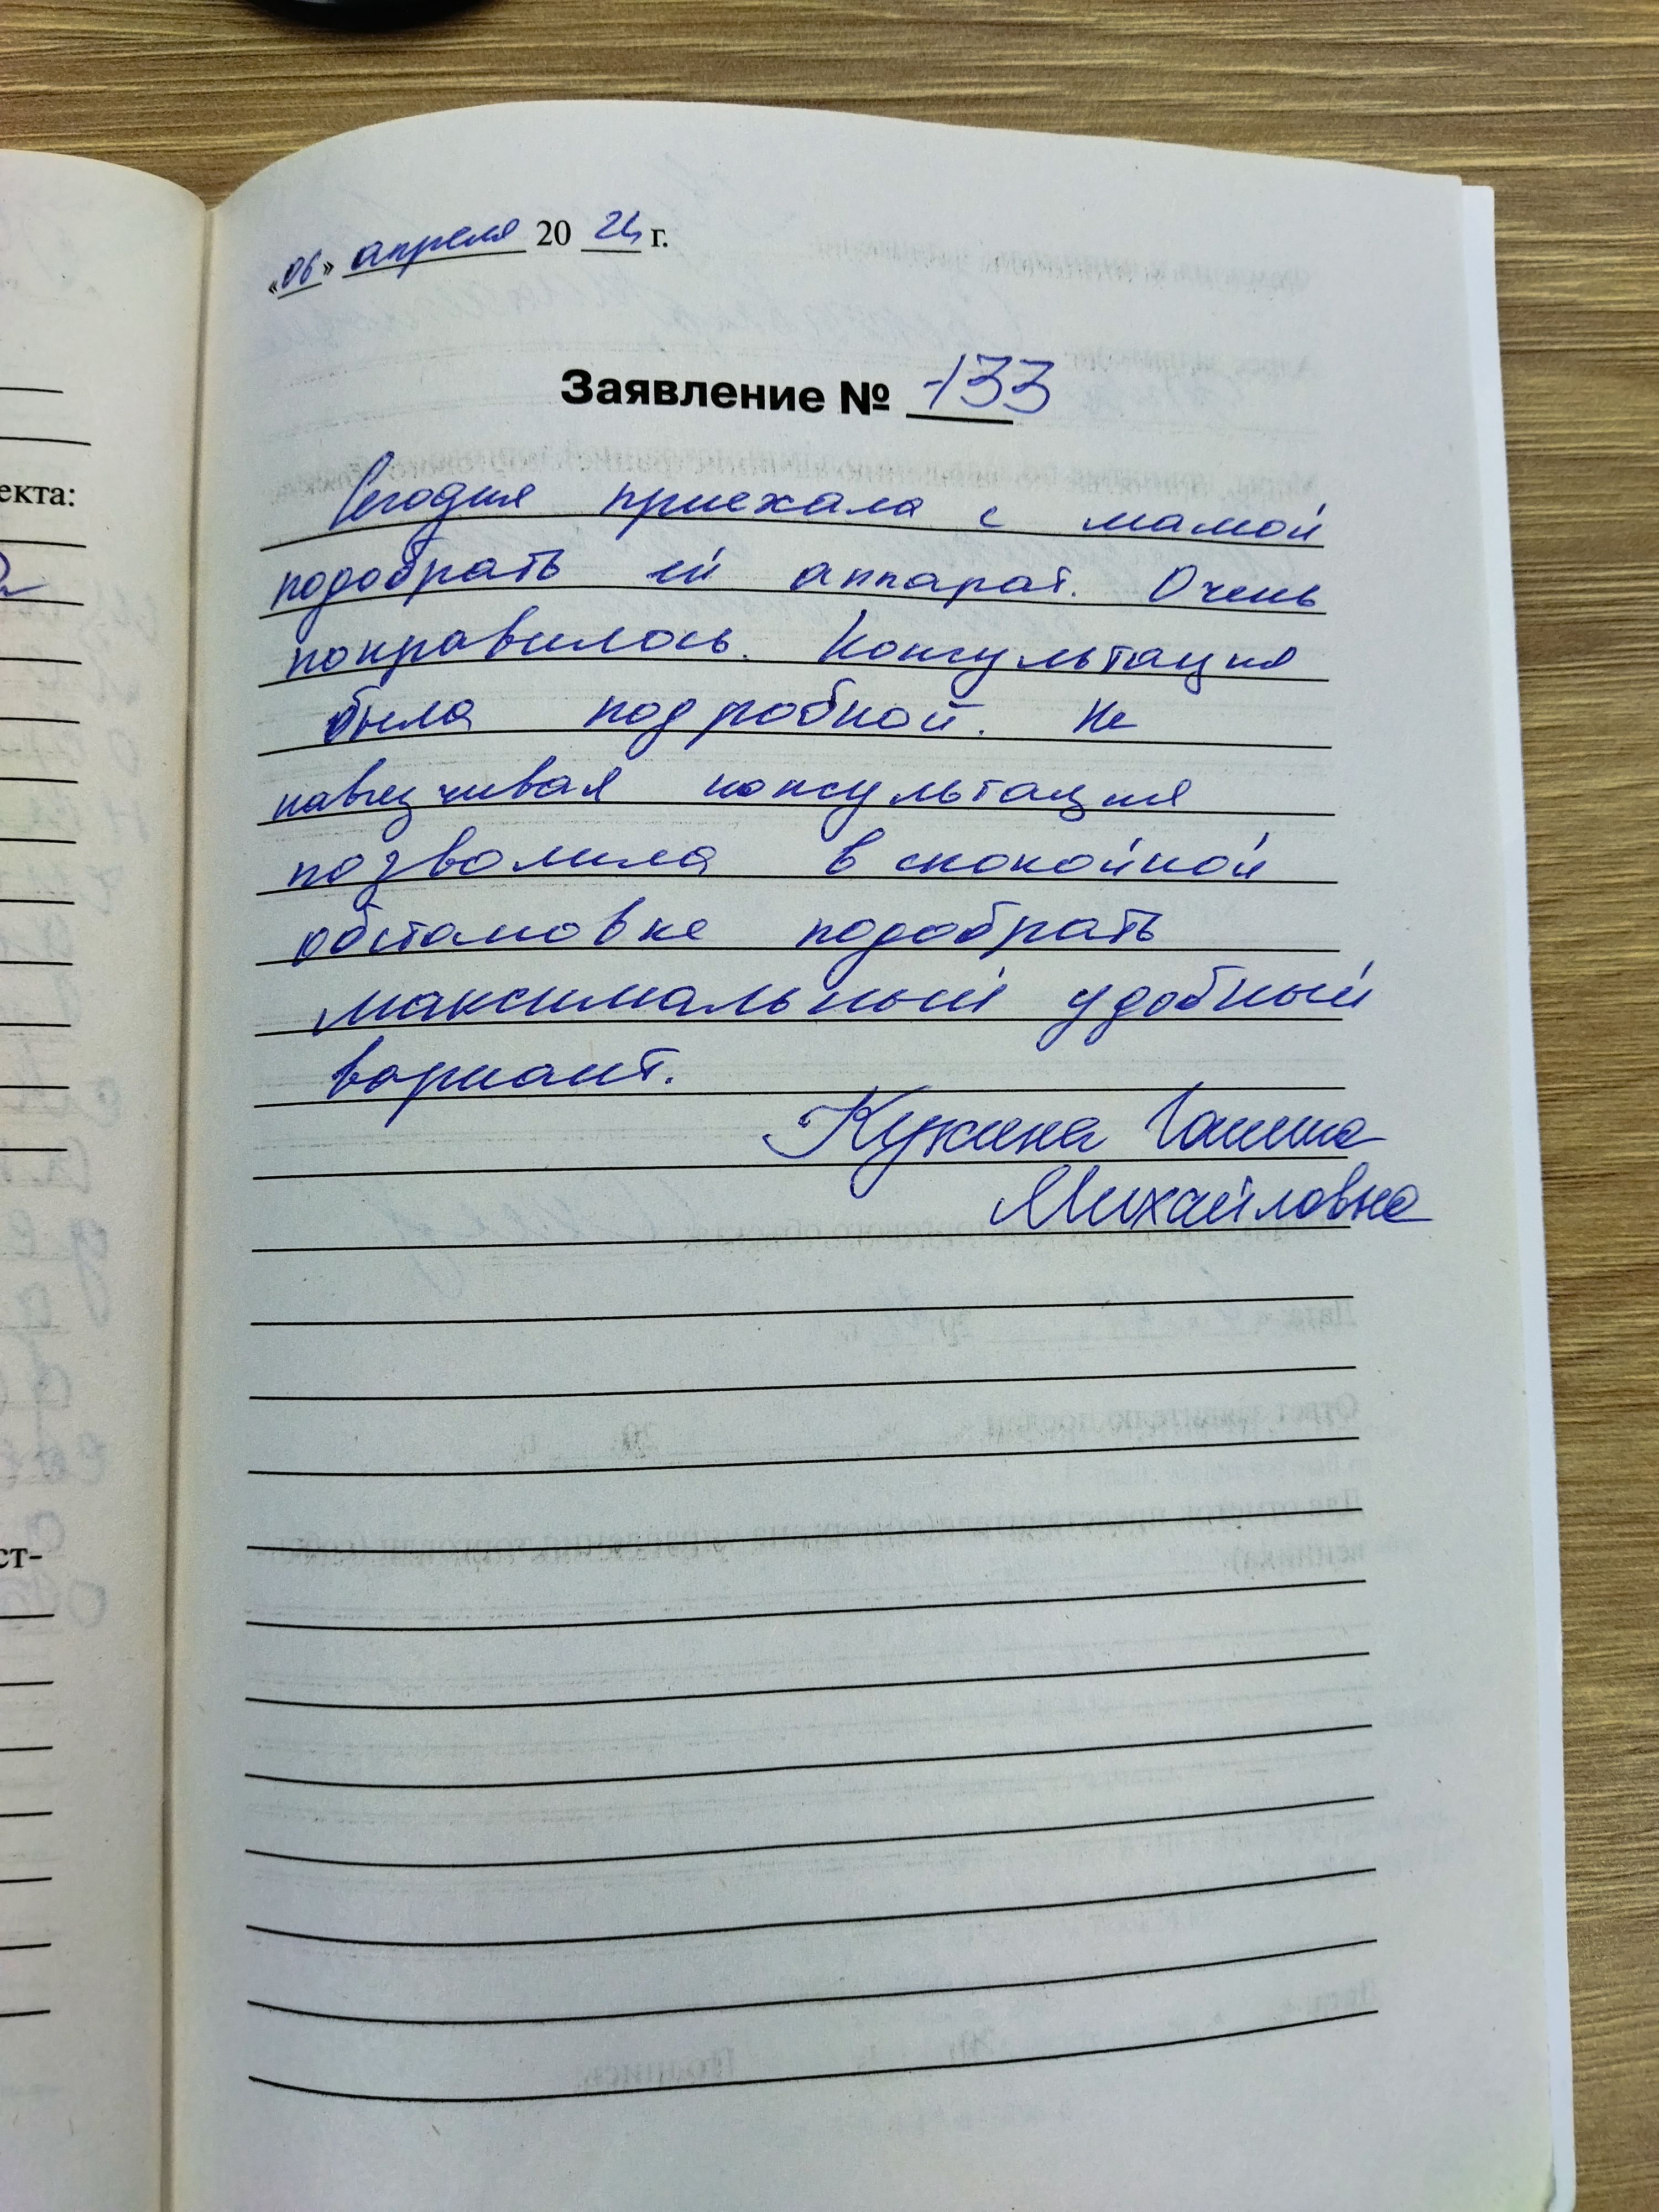 «06» апреля 2024 г.
Заявление № 133
екта:
Сегодня приехала с мамой
подобрать ей аппарат. Очень
понравилось. Консультация
была подробной. Не
навязчивая консультация
позволила в спокойной
обстановке подобрать
максимальный удобный
вариант.
Кукина Галина
Михайловна
ст-